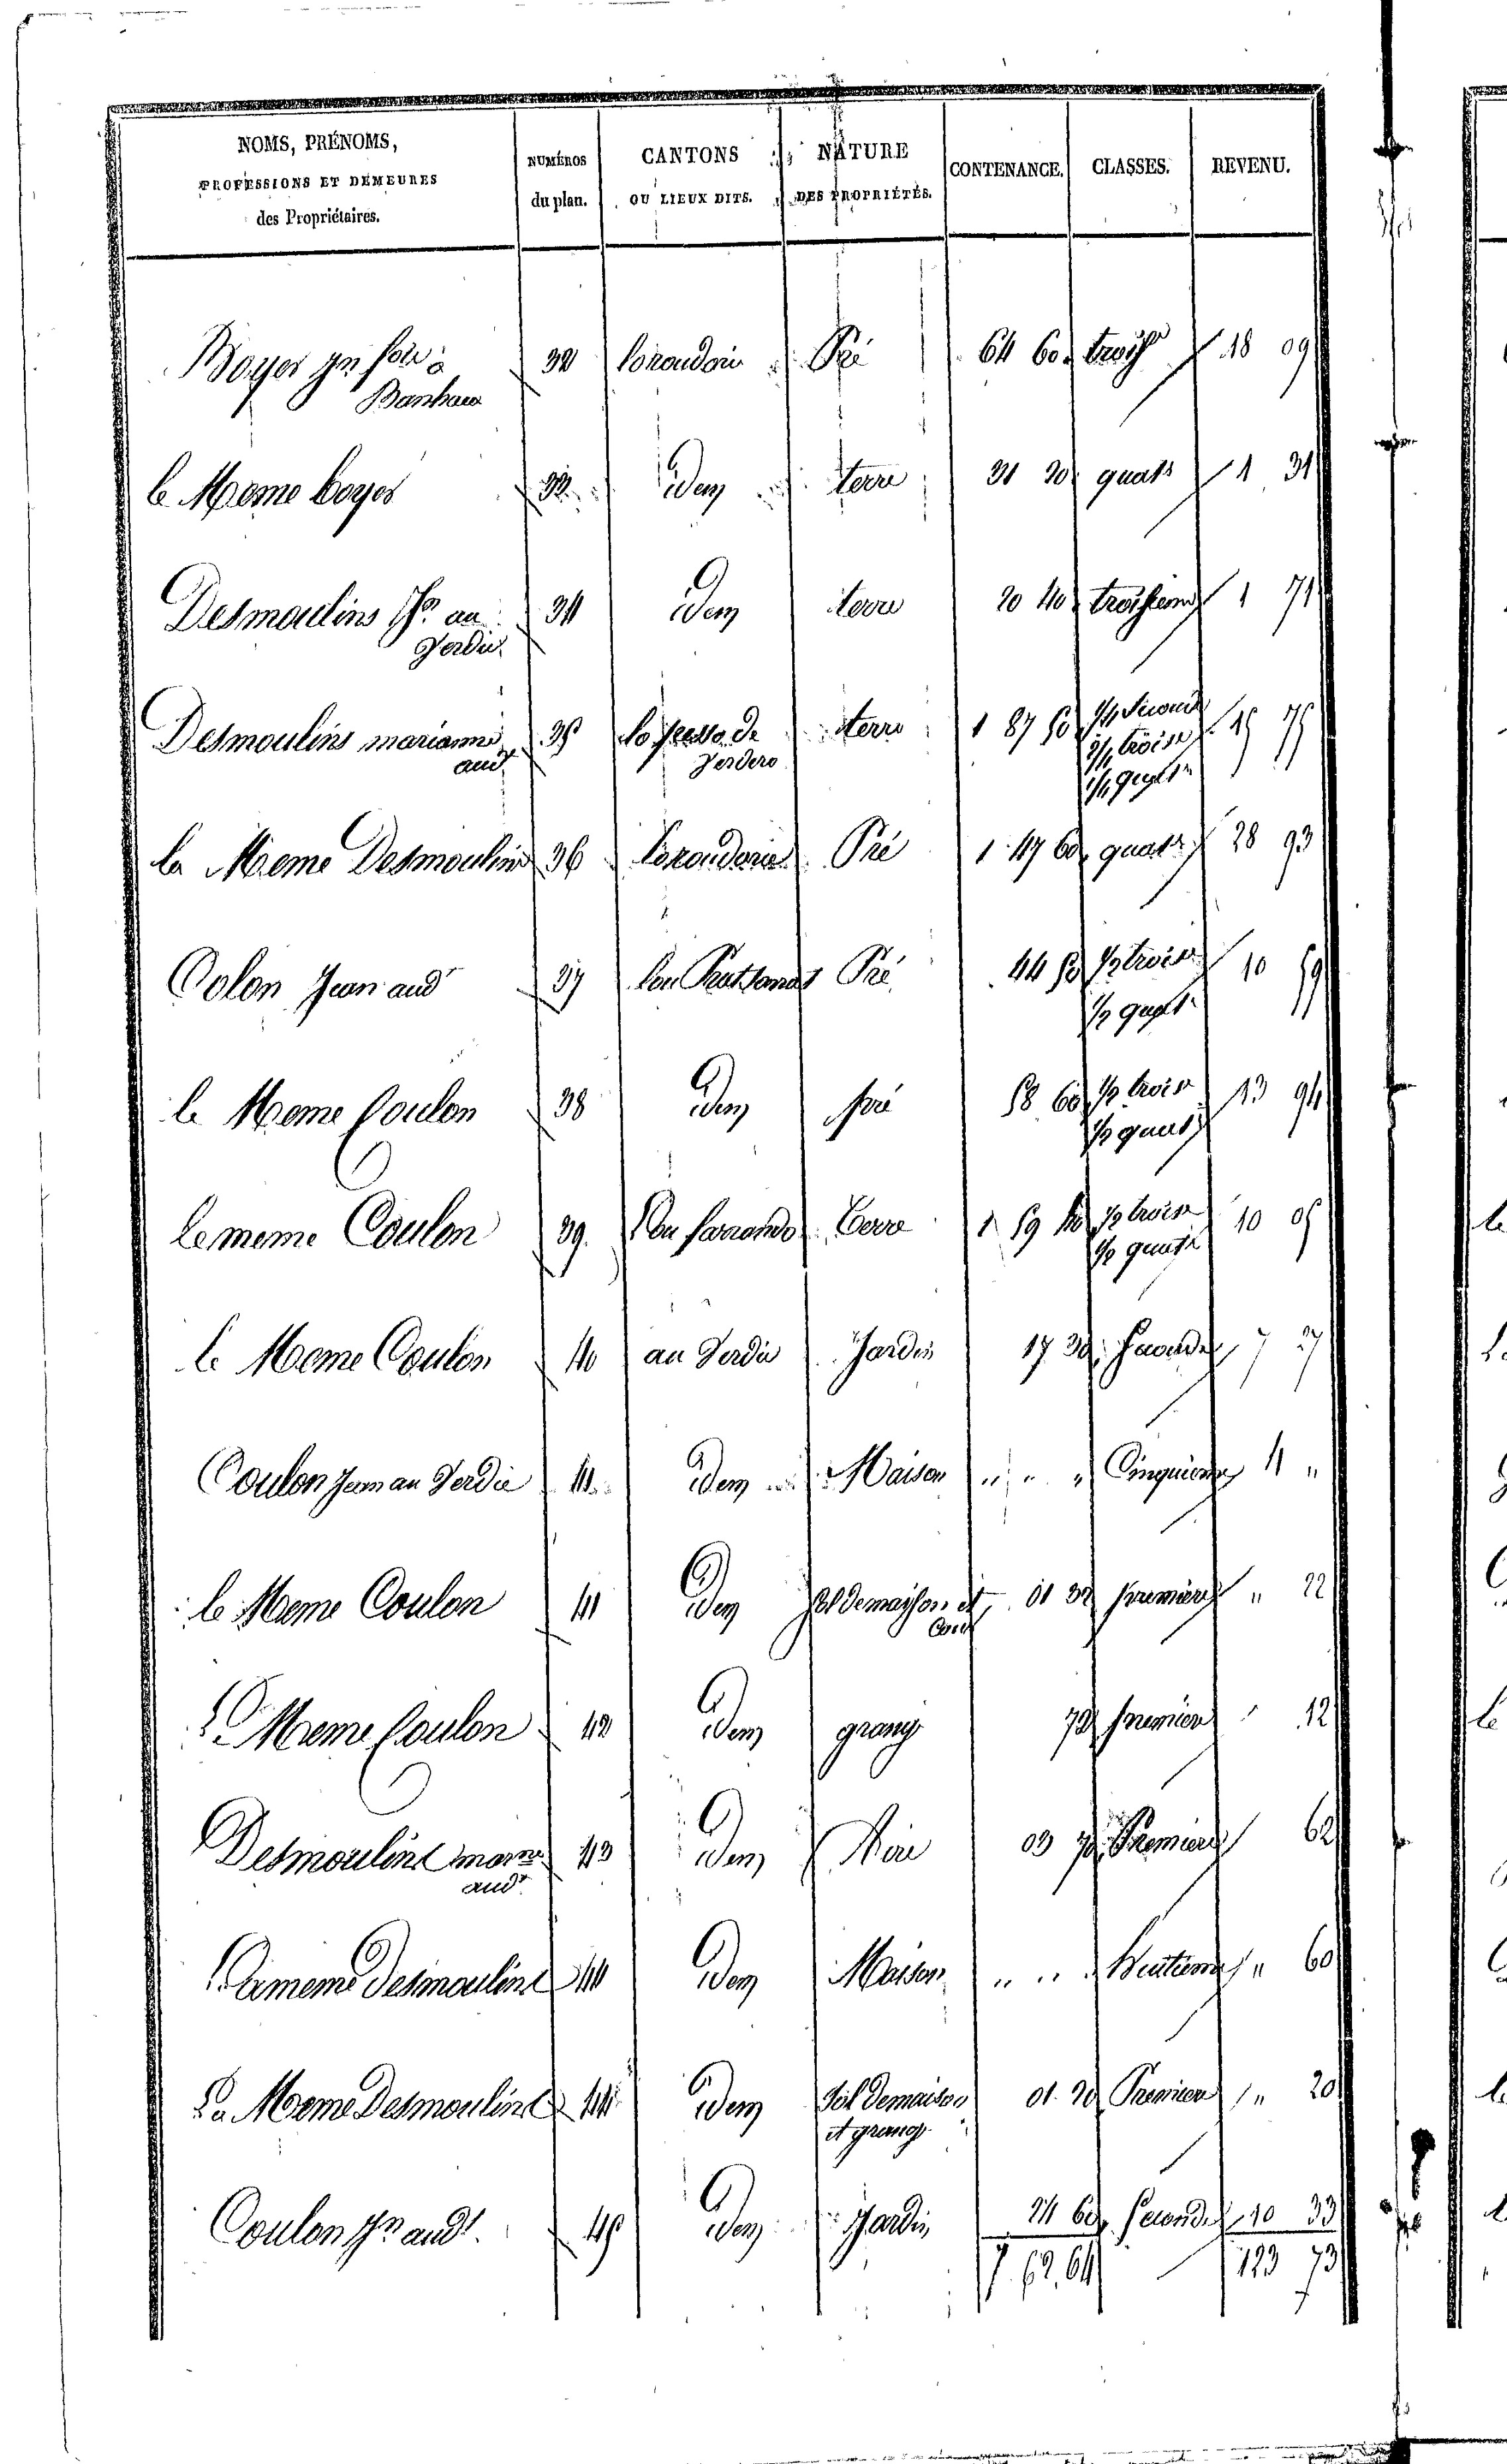 NOMS, PRÉNOMS,
PROFESSIONS ET DEMEURES
des Propriétaires.
NUMÉROS
du plan.
CANTONS
OU LIEUX DITS.
NATURE
DES PROPRIÉTÉS.
CONTENANCE.
CLASSES.
REVENU.
Boyer 32 Pré 64 60 18 09
le Meme boyer 33 idem terre 31 20 quatr 1 31
Desmoulins Jn au 34 idem terre 20 40 troisieme 1 71
Verdie
Desmoulins marianne 35 de terre 1 87 50 1/4 second 15 75
audt 2/4 troise
1/4 quatr
la Meme Desmoulins 36 Pré 1 47 60 quatr 28 93
Colon Jean audt 37 Pré 44 50 1/2 troise 10 59
1/2 quatr
le Meme Coulon 38 idem pré 58 60 1/2 troise 13 94
1/2 quatr
Le meme Coulon 39 terre 1 59 1/2 troise 10 05
1/2 quatr
le Meme Coulon 40 au Verdie Jardin 17 30 seconde 7 27
Coulon Jean au Verdie 41 idem Maison " " " Cinquieme 4 "
le Meme Coulon 41 idem sol de maison et 01 32 premiere " 22
Cour
Meme Coulon 42 idem grange 72 premiere 12
Desmoulins 43 idem Aire 03 70 Premiere 62
audt
La meme Desmoulins 44 idem Maison " " " huitieme " 60
La Meme Desmoulins 44 idem Sol de maison 01 20 Premiere " 20
et grange
Coulon Jn audt 45 idem Jardin 24 60 seconde 10 33
7 62 64 123 73